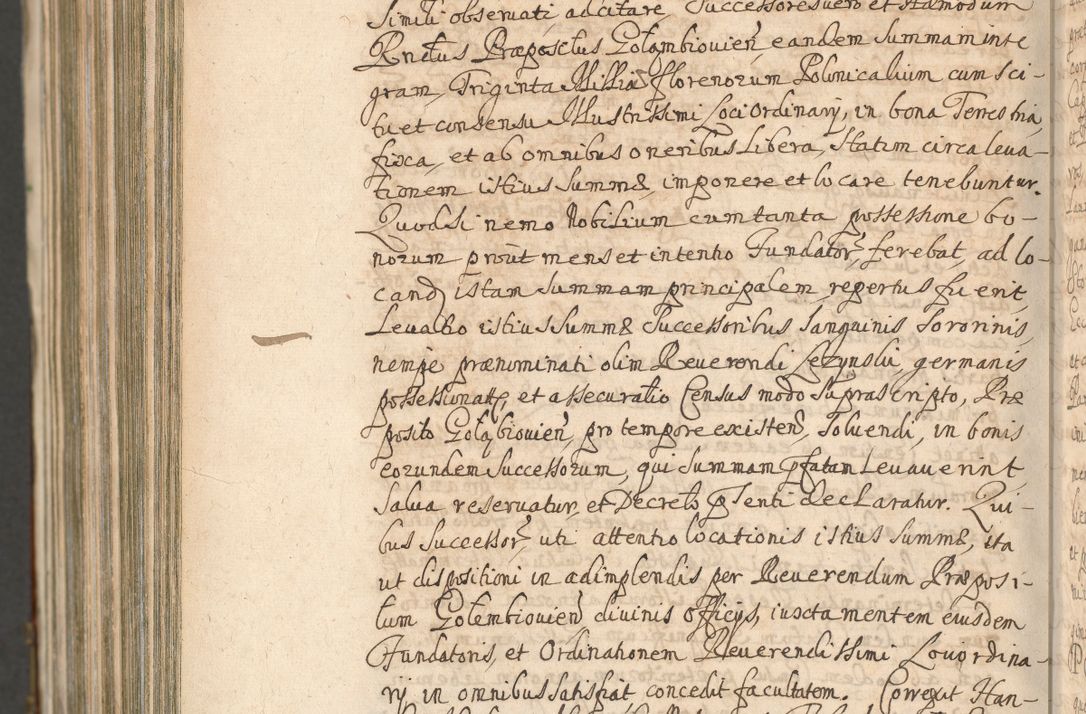 Simili obseruati, ad citare, Successores uero et Hamodum
Rndus Præpositus Goląmbiouien̄, eandem summam inte
gram, Triginta Millia florenorum Polonicalium cum sci-
tu et consensu Illustrissimi Loci Ordinarij, in bona Terrestria,
fixa, et ab omnibus oneribus Libera, statim circa leua-
tionem istius summæ, imponere et locare tenebuntur.
Quod si nemo Nobilium cum tanta possessione bo-
norum prout mens et intentio Fundator̄, ferebat, ad lo-
cand istam summam principalem, repertus fuerit,
Leuatio istius summæ Successoribus Sanguinis Sororinis,
nempe prænominati olim Reuerendi Lezynski, germanis
possessionatis, et assecuratio Census modo suprascripto, Præ
posito Gołąbiouien̄, pro tempore existen̄, soluendi, in bonis
eorundem Successorum, qui summam pfatam Leuauerint,
salua reseruatur, et Decreto pnti declaratur. Qui-
bus Successor̄, uti attentio locationis istius summæ, ita
ut dispositioni in adimplendis per Reuerendum Præposi-
tum Golembiouien̄ diuinis officijs, iuxta mentem eiusdem
Fundatoris, et Ordinationem Reuerendissimi Loci Ordina-
rij in omnibus satisfiat concedit facultatem. Correxit Han-